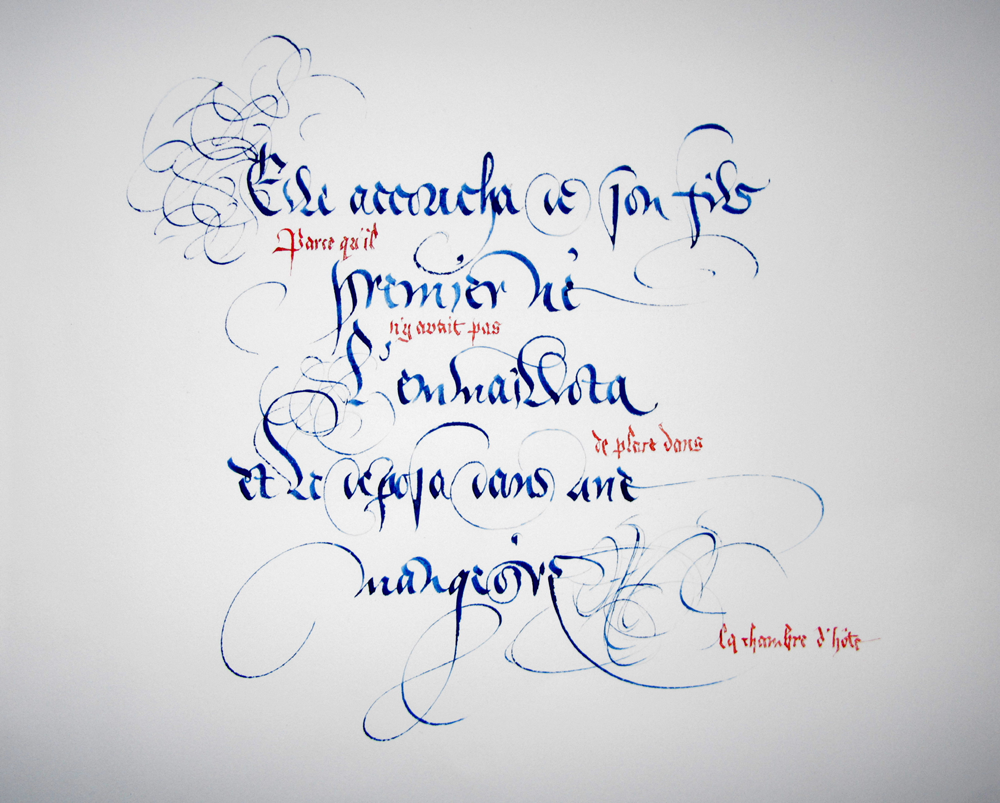 Elle accoucha de son fils
Parce qu'il
premier né
n'y avait pas
L'emmaillota
de place dans
et Le déposa dans une
mangeoire
la chambre d'hôte